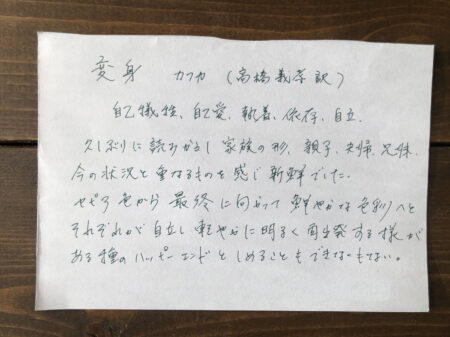 変身 カフカ (高橋義孝訳)
自己犠牲、自己愛、執着、依存、自立、
久しぶりに読みかえし 家族の形、親子、夫婦、兄妹、
今の状況と重なるものを感じ新鮮でした。
セピア色から 最終に向かって 鮮やかな色彩へと
それぞれが自立し 軽やかに明るく 再出発する様が
ある種のハッピーエンドと しめることも できないもない。